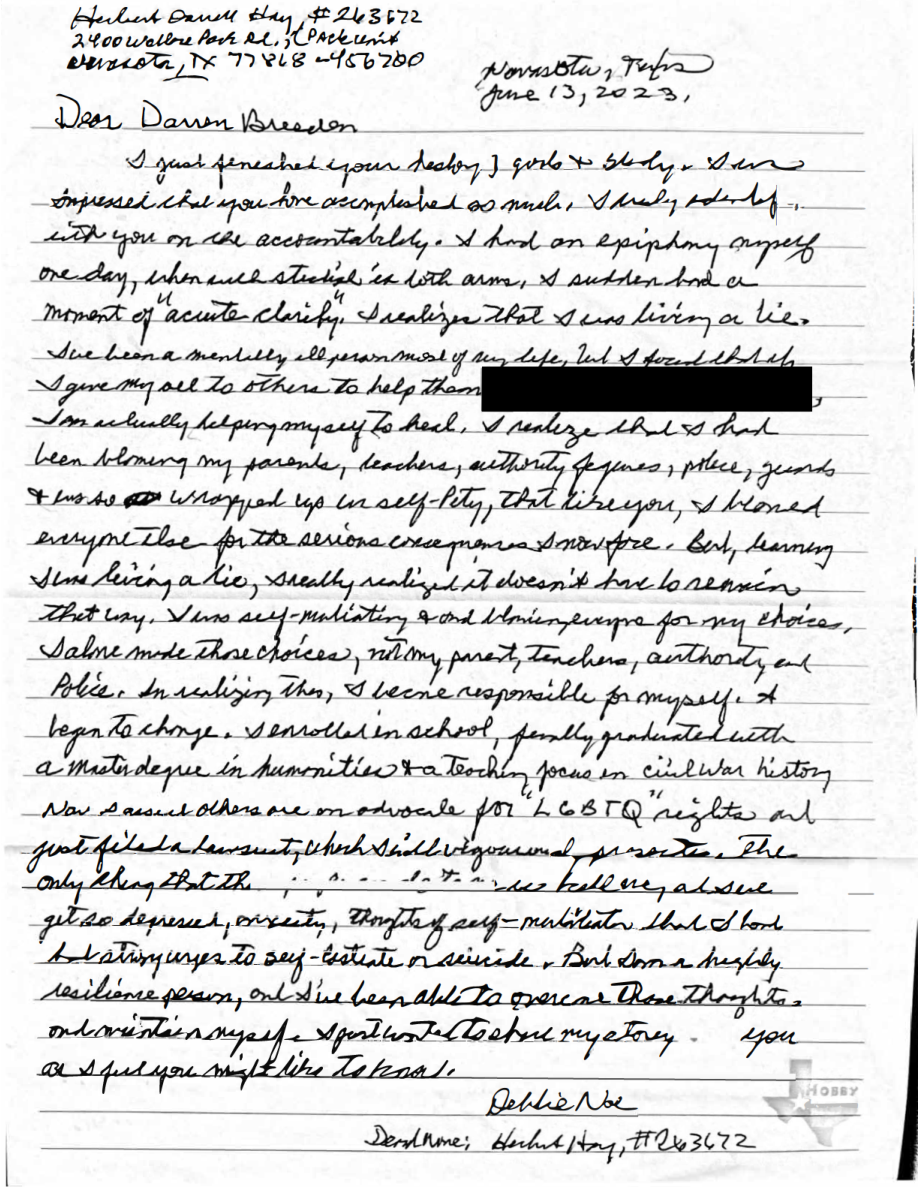 Herbert Darrell Hay, #263672
2400 Wallace Pack Rd.; (Pack Unit
Navasota, TX 77868-456200
Navasota, Texas
June 13, 2023,
Dear Darron Breeden
I just feneshed your hestory, goals & study. I am
impressed that you have accomplished as much. I
with you on the accountability. I had an epiphony myself
one day, when in both arms, I sudden had a
moment of "acute clarify". I realizes that I was living a lie.
I've been a mentally ill person most of my life, but I found that if
I give my all to others to help them
I am actually helping myself to heal. I realize that I had
been blaming my parents, teachers, authority fegures, police, guards
& was so wrapped up in self-Pety, that like you, I blamed
everyone else for the serious consequences I now face. But, learning
I was living a lie, I really realized it doesn't have to remain
that way. I was self-mutilating & and blaming everyone for my choices.
I alone made those choices, not my parent, teachers, authority and
Police. In realizing this, I became responsible for myself. I
began to change. I enrolled in school, finally graduated with
a master degree in humanities & a teaching focus on civil War history
Now I assist others are an advocate for "LGBTQ" rights and
just filed a lawsuit, which I will The
only thing that the
get so depressed, anxiety, thoughts of self-mutilation that I have
had strong urges to self-castrate or suicide. But I am a highly
resilience person, and I've been able to overcome those thoughts.
and maintain myself. I just wanted to share my storey you
as I felt you might like to know.
Debbie Noe
Dead Name; Herbert Hay, #263672
HOBBY